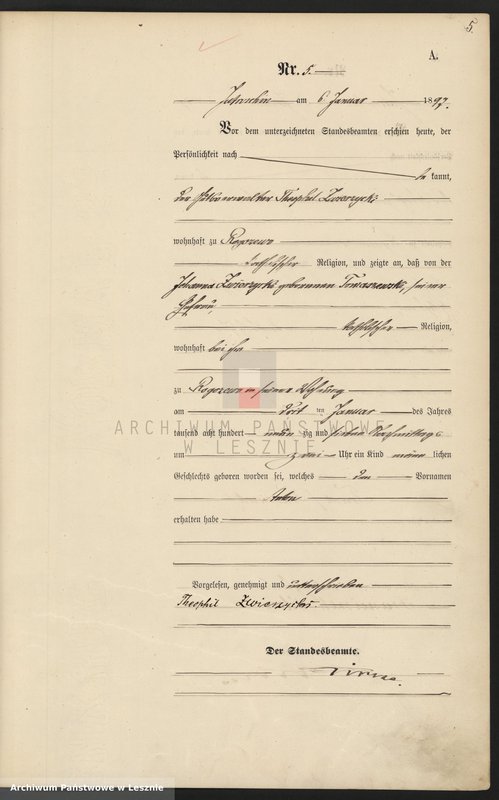 5.
A.
Nr. 5.
am 6 Januar 1897.
Vor dem unterzeichneten Standesbeamten erschien heute, der
Persönlichkeit nach
be kannt,
der Theophil Zwierzycki
wohnhaft zu Rogozewo
katholischer Religion, und zeigte an, daß von der
Johanna Zwierzycki geborenen Tomaszewski, seiner
Ehefrau,
katholischer Religion,
wohnhaft bei ihm
zu Rogozewo in seiner Wohnung
am ten Januar des Jahres
tausend acht hundert neun zig und sieben Nachmittags
um zwei Uhr ein Kind männ lichen
Geschlechts geboren worden sei, welches den Vornamen
Anton
erhalten habe
Vorgelesen, genehmigt und unterschrieben
Theophil Zwierzycki.
Der Standesbeamte.
ARCHIWUM PAŃSTWOWE
W LESZNIE
Archiwum Państwowe w Lesznie